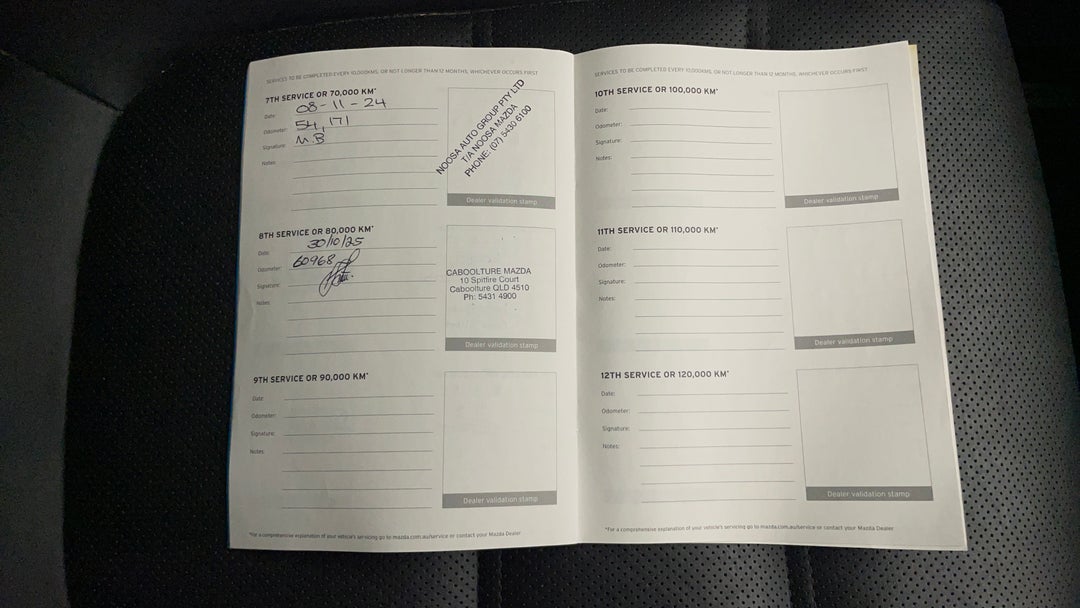 SERVICES TO BE COMPLETED EVERY 10,000KMS, OR NOT LONGER THAN 12 MONTHS, WHICHEVER OCCURS FIRST
7TH SERVICE OR 70,000 KM*
Date: 08-11-24
Odometer: 54,171
Signature: M.B
Notes:
NOOSA AUTO GROUP PTY LTD
T/A NOOSA MAZDA
PHONE: (07) 5430 6100
Dealer validation stamp
8TH SERVICE OR 80,000 KM*
Date: 30/10/25
Odometer: 60968
Signature:
Notes:
CABOOLTURE MAZDA
10 Spitfire Court
Caboolture QLD 4510
Ph: 5431 4900
Dealer validation stamp
9TH SERVICE OR 90,000 KM*
Date:
Odometer:
Signature:
Notes:
Dealer validation stamp
*For a comprehensive explanation of your vehicle's servicing go to mazda.com.au/service or contact your Mazda Dealer
SERVICES TO BE COMPLETED EVERY 10,000KMS, OR NOT LONGER THAN 12 MONTHS, WHICHEVER OCCURS FIRST
10TH SERVICE OR 100,000 KM*
Date:
Odometer:
Signature:
Notes:
Dealer validation stamp
11TH SERVICE OR 110,000 KM*
Date:
Odometer:
Signature:
Notes:
Dealer validation stamp
12TH SERVICE OR 120,000 KM*
Date:
Odometer:
Signature:
Notes:
Dealer validation stamp
*For a comprehensive explanation of your vehicle's servicing go to mazda.com.au/service or contact your Mazda Dealer